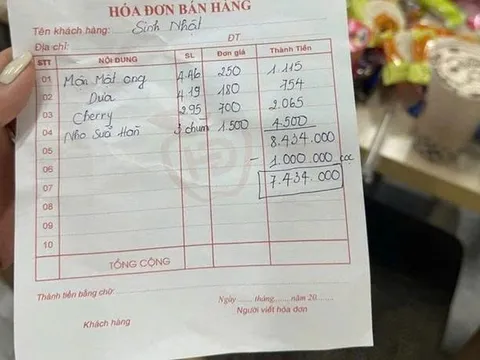 HÓA ĐƠN BÁN HÀNG
Tên khách hàng: Sinh Nhật
Địa chỉ: ĐT
STT NỘI DUNG SL Đơn giá Thành Tiền
01 Mận Mật ong 4.46 250 1.115
02 Dưa 4.19 180 754
03 Cherry 2.95 700 2.065
04 Nho Sữa Hàn 3 chùm 1.500 4.500
05 8.434.000
06 - 1.000.000 cọc
07 7.434.000
08
09
10
TỔNG CỘNG
Thành tiền bằng chữ
Ngày ...... tháng ...... năm 20 ....
Khách hàng Người viết hóa đơn